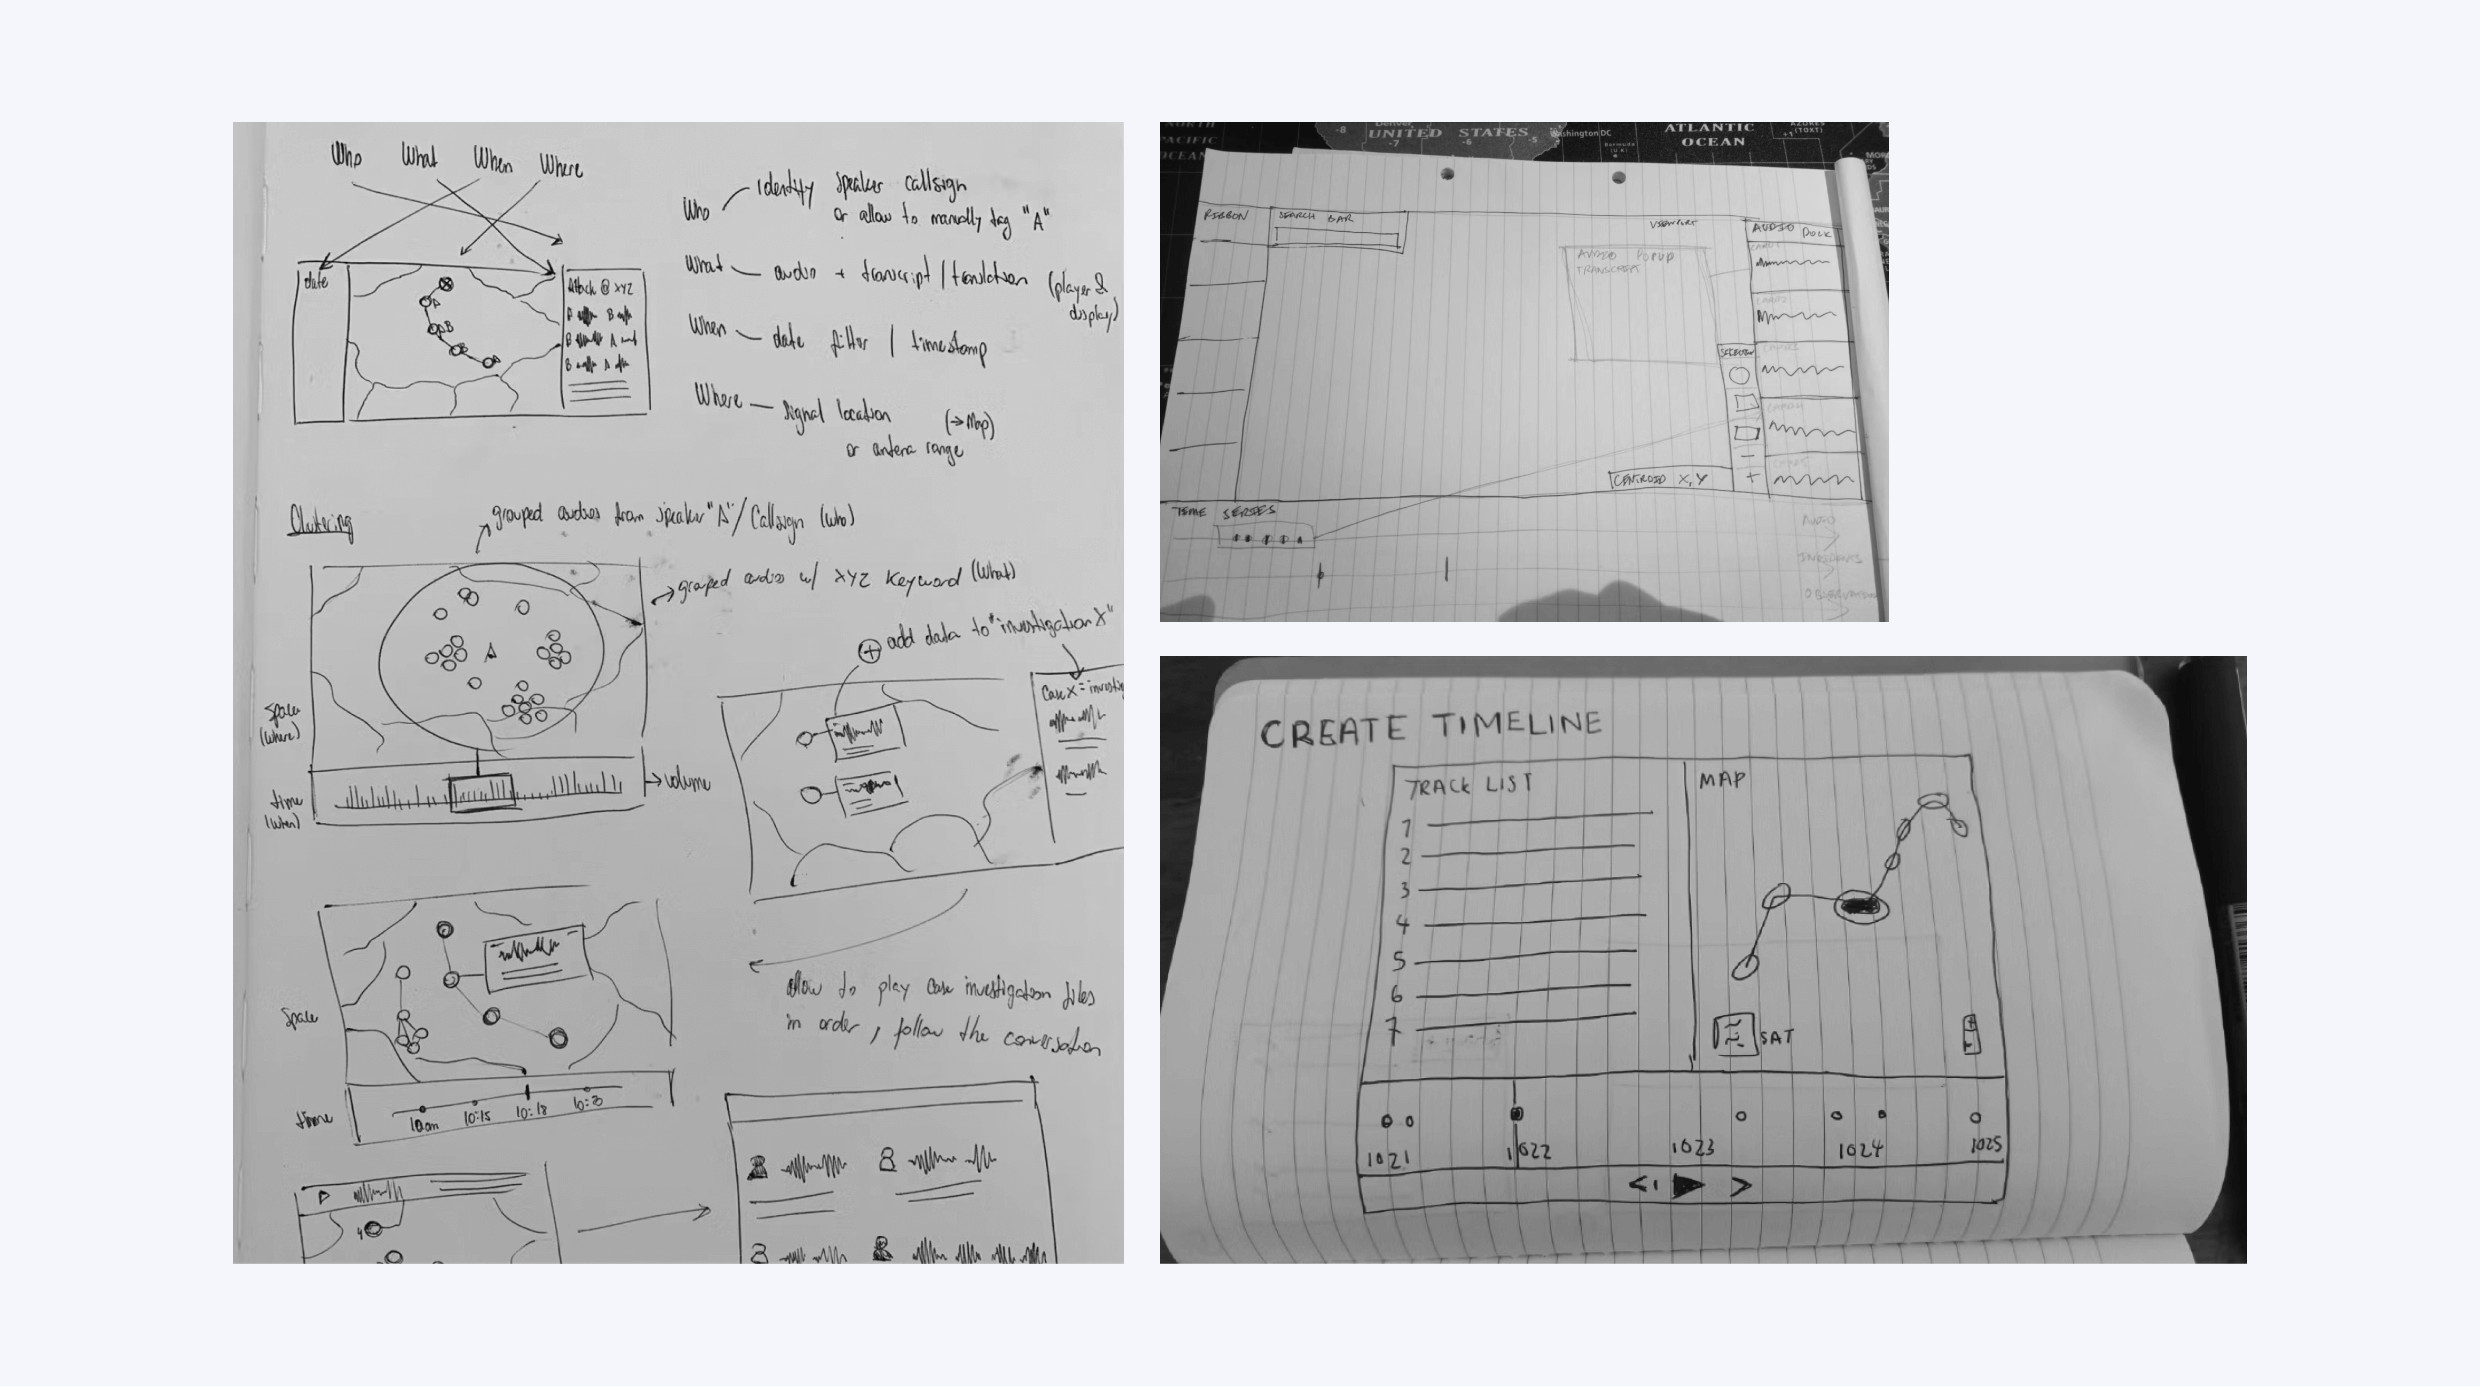 Who What When Where
date
Attack @ XYZ
A B
B A
B A
A
B
Who
identify speaker callsign
or allow to manually tag "A"
What
audio + transcript / translation (player &
display)
When
date filter / timestamp
Where
signal location (→Map)
or antena range
Clutering
grouped audios from speaker "A" / Callsign (who)
grouped audios w/ XYZ Keyword (What)
A
Space
(where)
time
(when)
volume
add data to "investigation X"
Case X = investig
Space
time
10am 10:15 10:18 10:20
allow to play case investigation files
in order, follow the conversation
UNITED STATES
Washington DC
ATLANTIC
OCEAN
-8 -7 -6 -5 +1
(TOXT)
PACIFIC
OCEAN
RIBBON
SEARCH BAR
VIEWPORT
AUDIO DOCK
AUDIO POPUP
TRANSCRIPT
SELECTION
CENTROID X,Y
TIME SERIES
AUDIO
INCIDENTS
OBSERVATION
CREATE TIMELINE
TRACK LIST
1
2
3
4
5
6
7
MAP
SAT
1021 1022 1023 1024 1025